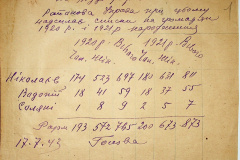 Районова Управа при цьому
надсилає списки на громадян
1920 р. і 1921 р. народження
1920 р. 1921 р.
Чол. Жін. Чол. Жін.
Ніколаєв 174 513 697 183
Водопій 18 41 59 18 37 55
Соляні 1 8 9 2 5 7
Разом 193 572 765 200 673 873
17.7.43 Голова